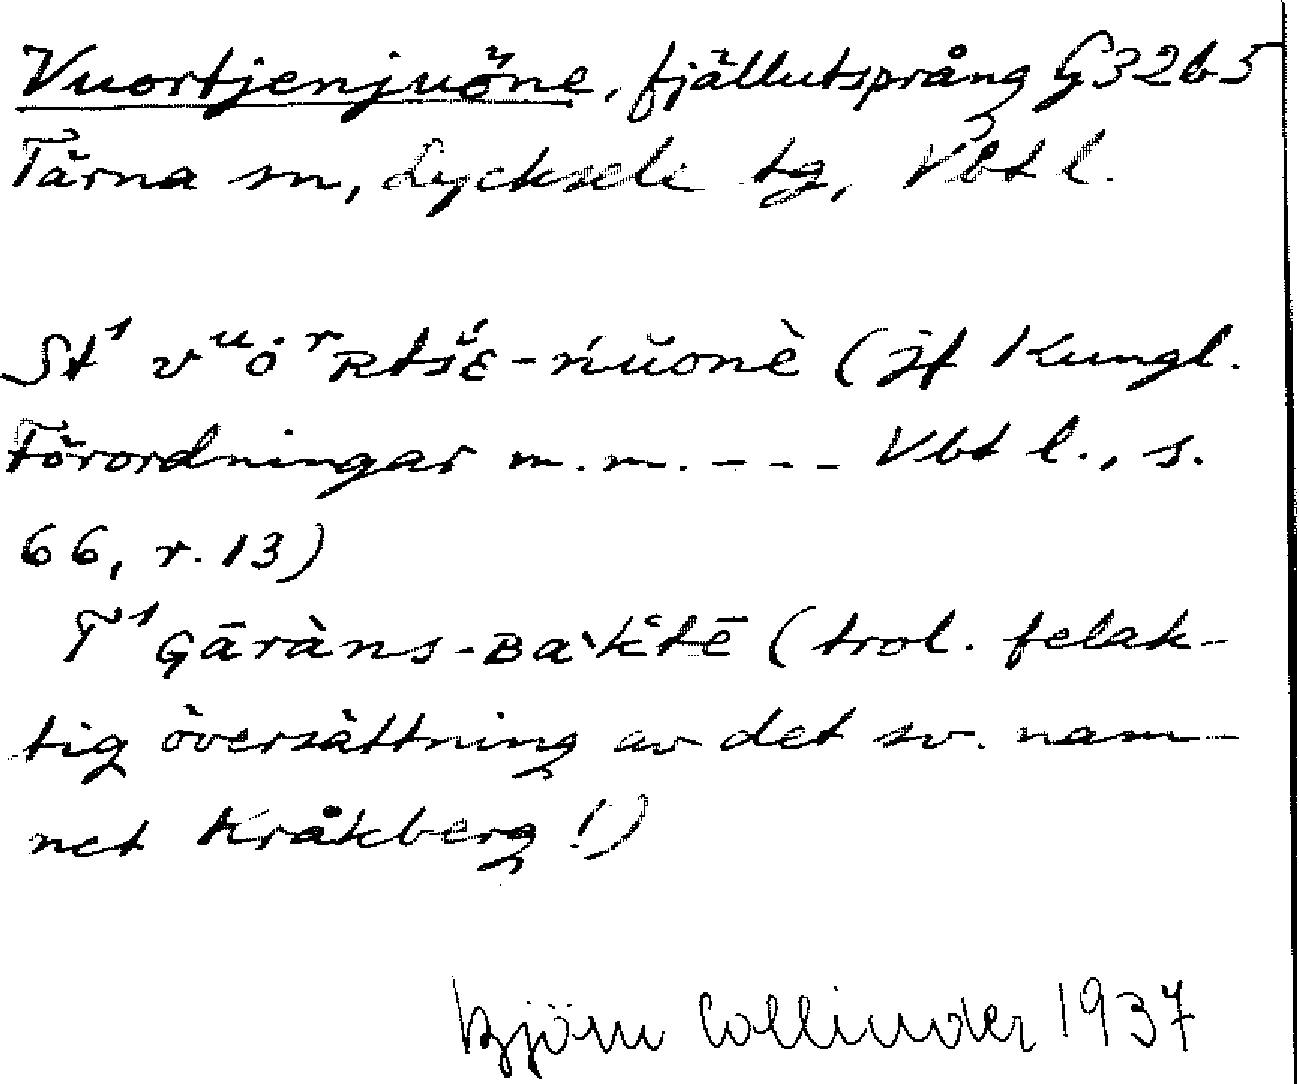 Vuortjenjuöne, fjällutsprång G32b5
Tärna sn, Lycksele tg, Vbt l.
St¹ vᵘȯʳʀtś́ᴇ̆-ńŭonè (jf Kungl.
Förordningar m.m. - - - - Vbt l., s.
66, r. 13)
T¹ Gāràns-Baˋḱtē (trol. felak-
tig översättning av det sv. nam-
net Kråkberg!)
Björn Collinder 1937